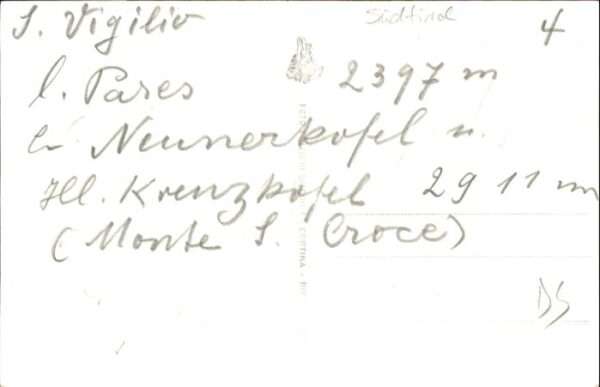 S. Vigilio Südtirol 4
l. Pares 2397 m
Neunerkofel u.
Hl. Kreuzkofel 2911 m
(Monte S. Croce)
DS